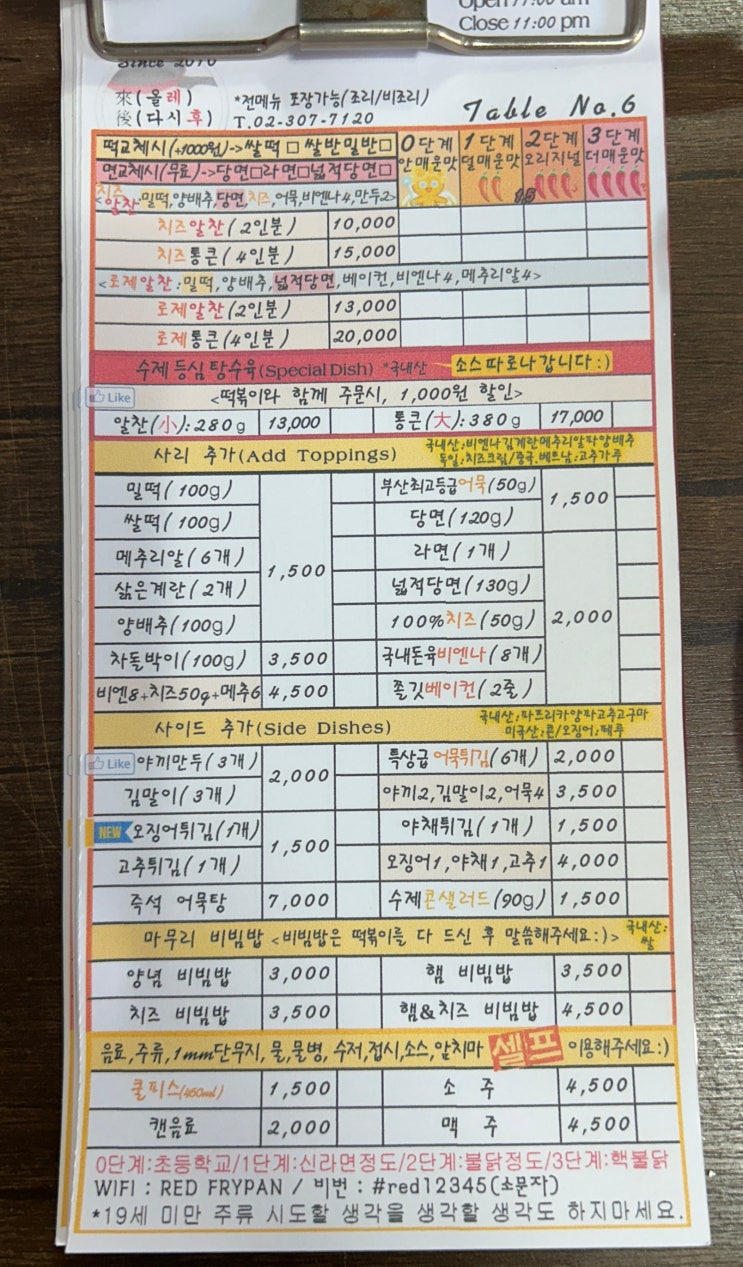 Open 11:00 am
Close 11:00 pm
Since 2010
來(올레)
後(다시후)
*전메뉴 포장가능(조리/비조리)
T.02-307-7120
Table No.6
떡교체시(+1000원)->쌀떡 □ 쌀반밀반□
면교체시(무료)->당면□라면□넓적당면□
0단계 안매운맛
1단계 덜매운맛
2단계 오리지널
3단계 더매운맛
1.5
<치즈알찬:밀떡,양배추,당면,치즈,어묵,비엔나4,만두2>
치즈알찬(2인분) 10,000
치즈통큰(4인분) 15,000
<로제알찬:밀떡,양배추,넓적당면,베이컨,비엔나4,메추리알4>
로제알찬(2인분) 13,000
로제통큰(4인분) 20,000
수제 등심 탕수육(Special Dish) *국내산 소스따로나갑니다:)
Like <떡볶이와 함께 주문시, 1,000원 할인>
알찬(小):280g 13,000 통큰(大):380g 17,000
사리 추가(Add Toppings)
국내산;비엔나김계란메추리알파양배추
독일;치즈크림/중국,베트남;고추가루
밀떡(100g) 부산최고등급어묵(50g) 1,500
쌀떡(100g) 당면(120g)
메추리알(6개) 1,500 라면(1개)
삶은계란(2개) 넓적당면(130g)
양배추(100g) 100%치즈(50g) 2,000
차돌박이(100g) 3,500 국내돈육비엔나(8개)
비엔8+치즈50g+메추6 4,500 쫄깃베이컨(2줄)
사이드 추가(Side Dishes)
국내산;파프리카양파고추고구마
미국산;콘/오징어;페루
Like 야끼만두(3개) 2,000 특상급 어묵튀김(6개) 2,000
김말이(3개) 야끼2,김말이2,어묵4 3,500
NEW 오징어튀김(1개) 1,500 야채튀김(1개) 1,500
고추튀김(1개) 오징어1,야채1,고추1 4,000
즉석 어묵탕 7,000 수제콘샐러드(90g) 1,500
마무리 비빔밥 <비빔밥은 떡볶이를 다 드신 후 말씀해주세요:)> 국내산;쌀
양념 비빔밥 3,000 햄 비빔밥 3,500
치즈 비빔밥 3,500 햄&치즈 비빔밥 4,500
음료,주류,1mm단무지,물,물병,수저,접시,소스,앞치마 셀프 이용해주세요:)
쿨피스(450ml) 1,500 소 주 4,500
캔음료 2,000 맥 주 4,500
0단계:초등학교/1단계:신라면정도/2단계:불닭정도/3단계:핵불닭
WIFI : RED FRYPAN / 비번 : #red12345(소문자)
*19세 미만 주류 시도할 생각을 생각할 생각도 하지마세요.